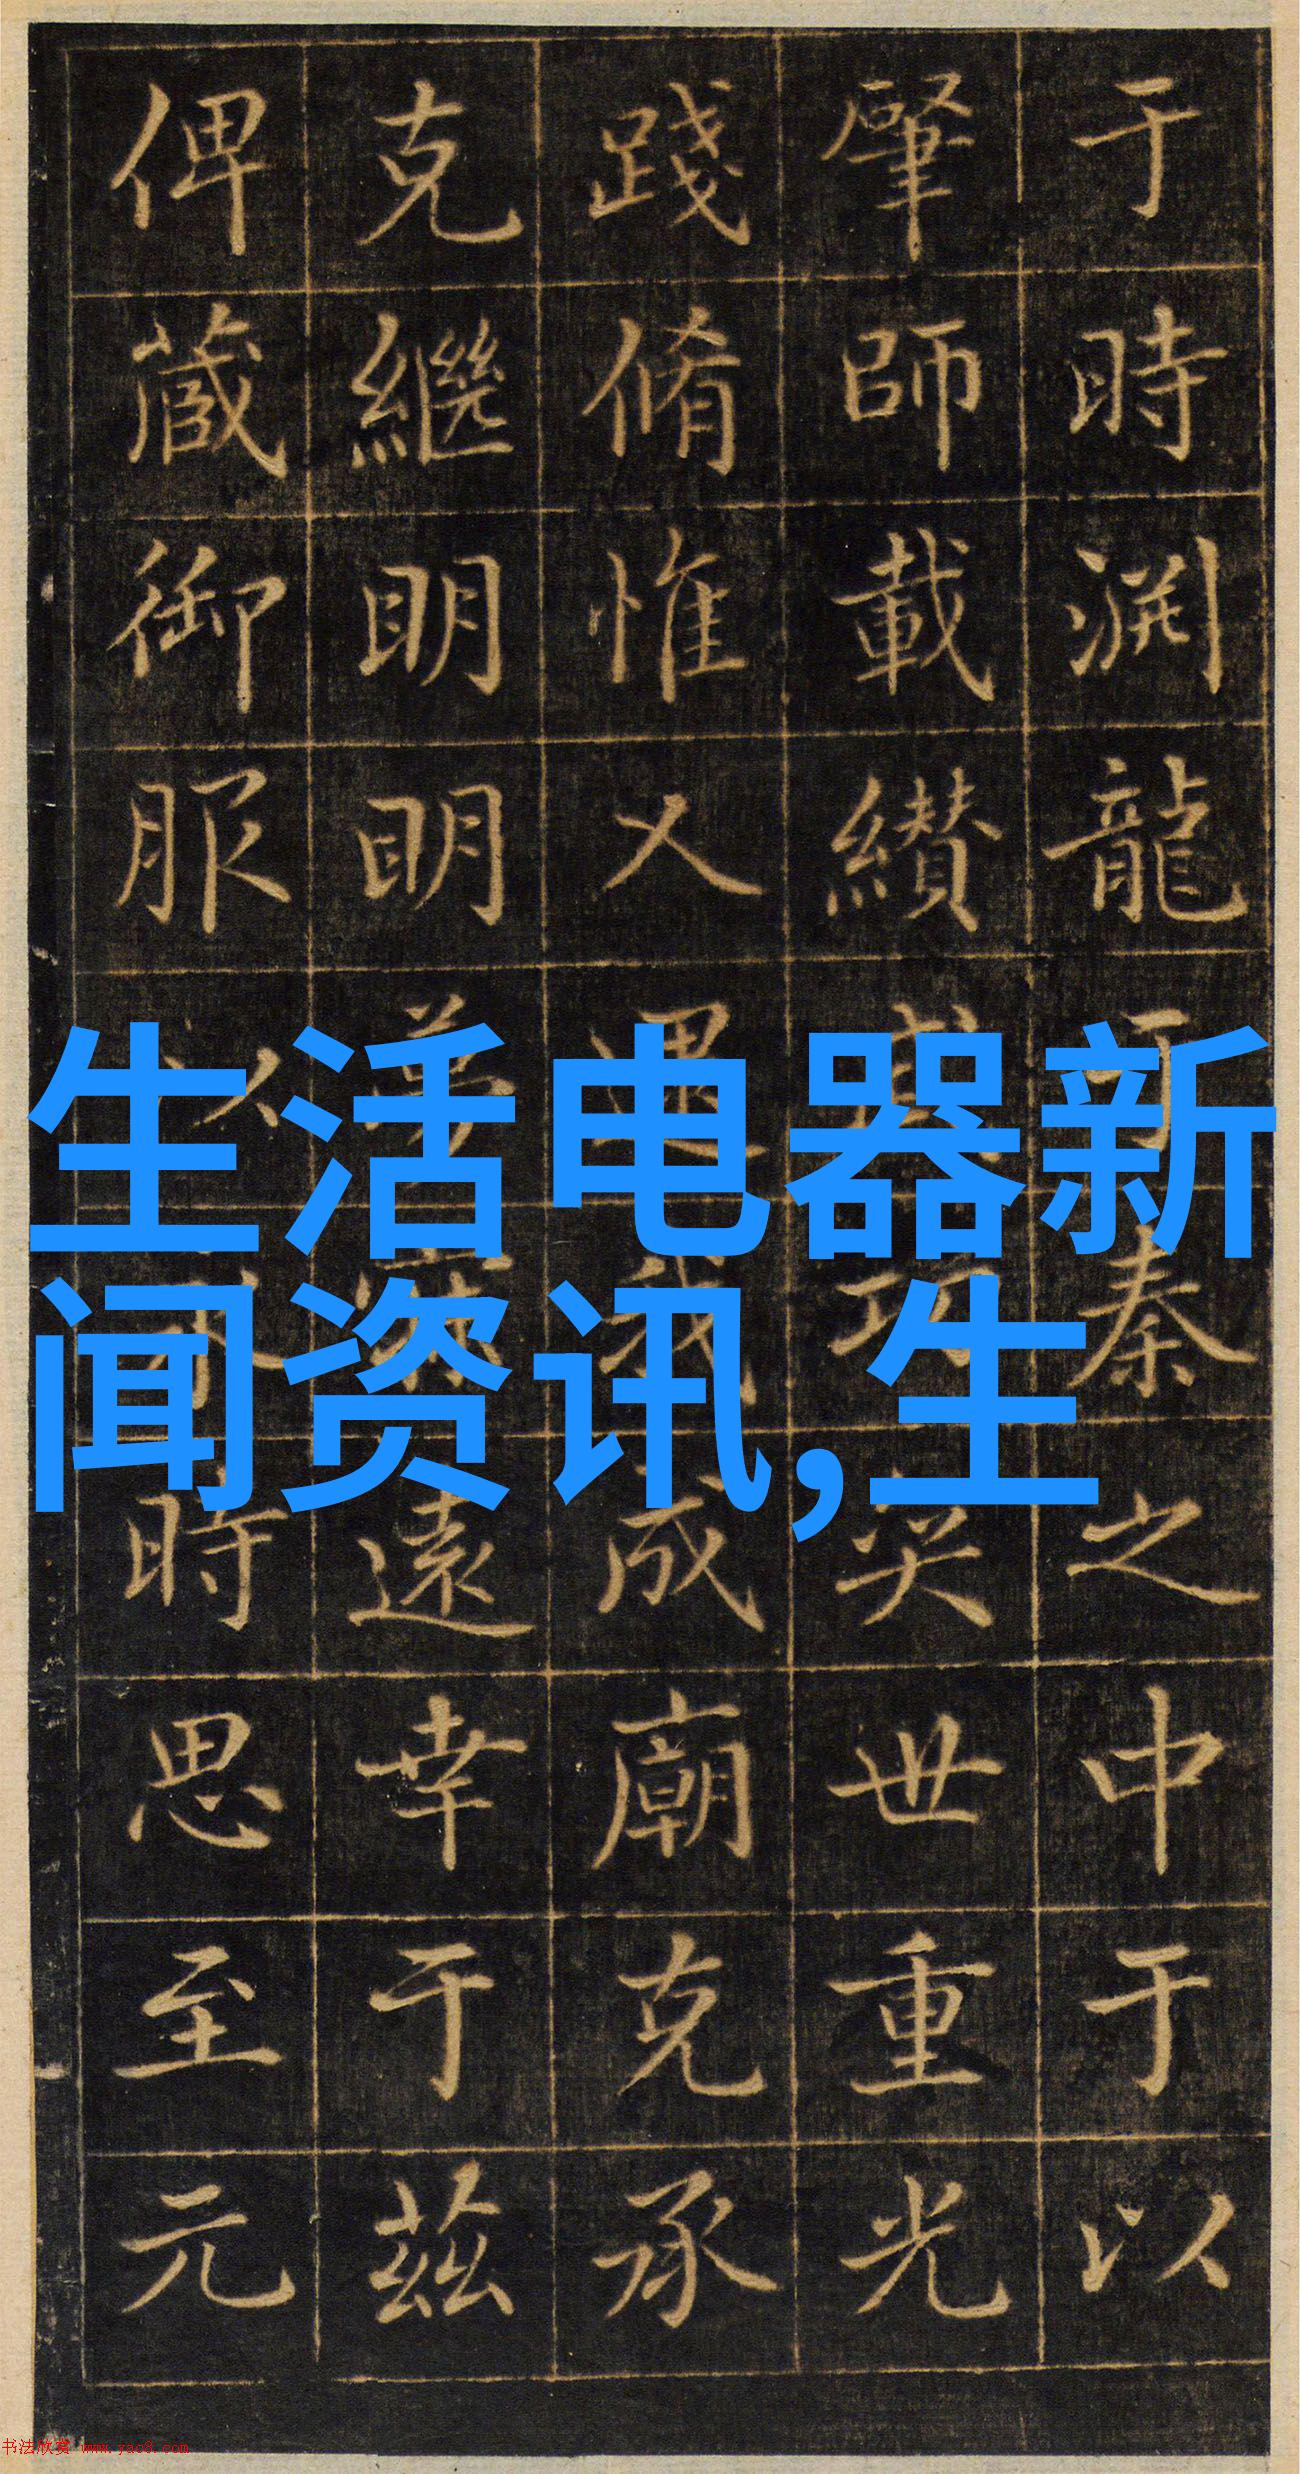 于時渕龍于秦之中于以
肇師載纘功奕世重光
踐脩惟乂我成廟克承
克繼明明遠幸于茲
俾蕆御服以時思至元
生活电器新
闻资讯,生
书法欣赏 www.yac8.com